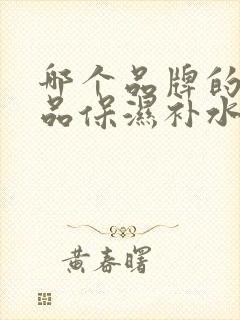 哪个品牌的
品保濕补水
黄春曙